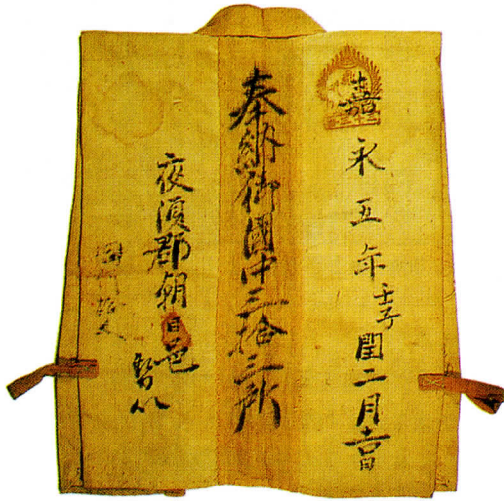 嘉永五年壬子閏二月吉日
奉納御國中三拾三所
夜須郡朝日邑